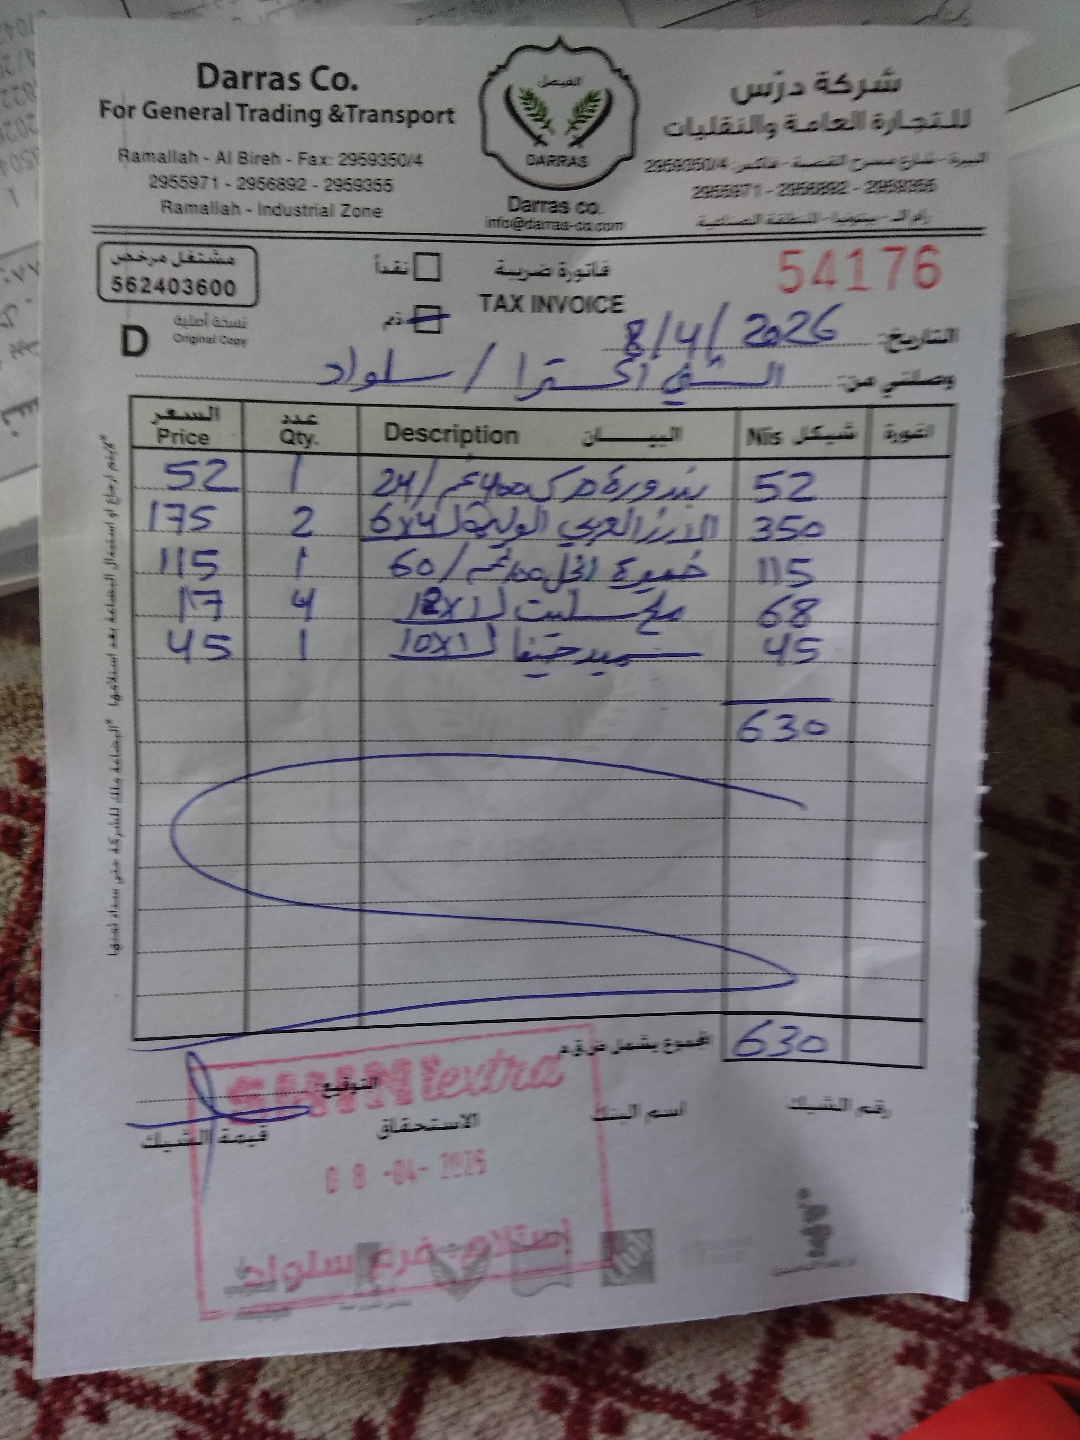 Darras Co.
For General Trading &Transport
Ramallah - Al Bireh - Fax: 2959350/4
2955971 - 2956892 - 2959355
Ramallah - Industrial Zone
الفيصل
DARRAS
Darras co.
info@darras-co.com
شركة درّس
للتجارة العامة والنقليات
البيرة - شارع مسرح القصبة - فاكس 2959350/4
2955971 - 2956892 - 2959355
رام الله - بيتونيا - المنطقة الصناعية
مشتغل مرخص
562403600
نقداً
ذمم
فاتورة ضريبة
TAX INVOICE
54176
D
نسخة أصلية
Original Copy
التاريخ: 8/4/2026
وصلني من: الشني اكسترا / سلواد
السعر Price عدد Qty. Description البيان Nis شيكل اغورة
52 1 بندورة 400غم /24 52
175 2 الارز العربي 6x4 350
115 1 خميرة /60 115
17 4 ملح سلبت 12x1 68
45 1 سميد 10x1 45
630
المجموع يشمل ض.ق.م 630
التوقيع:
رقم الشيك اسم البنك الاستحقاق قيمة الشيك
extra
08-04-2026
إستلام فرع سلواد